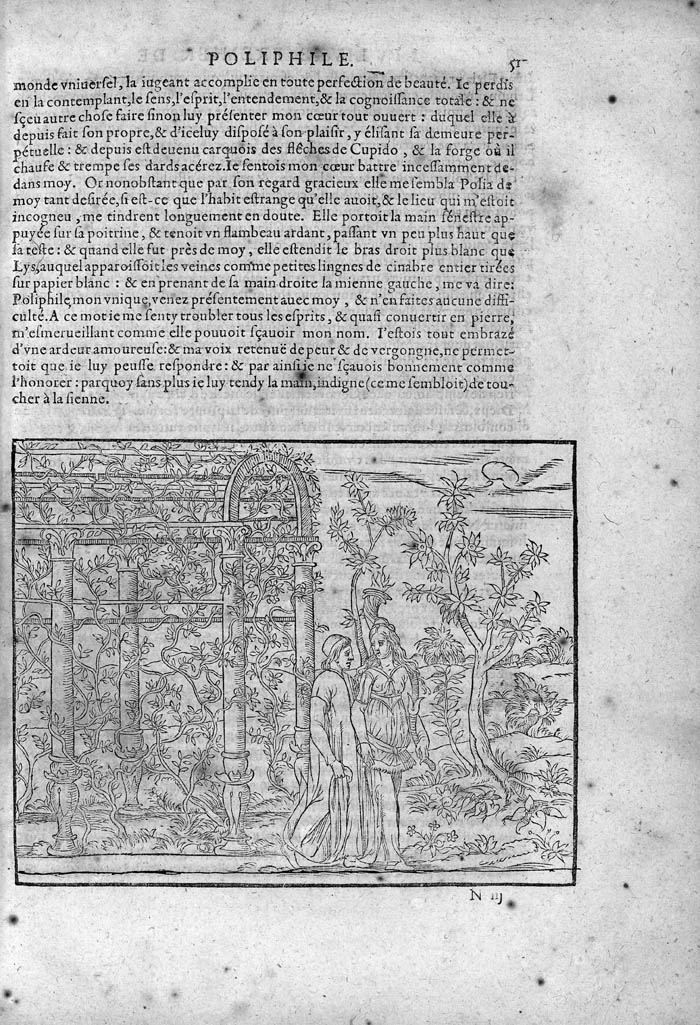 POLIPHILE. 51
monde vniuersel, la iugeant accomplie en toute perfection de beauté. Ie perdis
en la contemplant, le sens, l'esprit, l'entendement, & la cognoissance totale : & ne
sçeu autre chose faire sinon luy présenter mon cœur tout ouuert : duquel elle à
depuis fait son propre, & d'iceluy disposé à son plaisir, y élisant sa demeure per-
pétuelle : & depuis est deuenu carquois des fléches de Cupido, & la forge où il
chaufe & trempe ses dards acérez. Ie sentois mon cœur battre incessamment de-
dans moy. Or nonobstant que par son regard gracieux elle me sembla Polia de
moy tant desirée, si est-ce que l'habit estrange qu'elle auoit, & le lieu qui m'estoit
incogneu, me tindrent longuement en doute. Elle portoit la main senestre ap-
puyée sur sa poitrine, & tenoit vn flambeau ardant, passant vn peu plus haut que
sa teste : & quand elle fut près de moy, elle estendit le bras droit plus blanc que
Lys, auquel apparoissoit les veines comme petites lingnes de cinabre entier tirées
sur papier blanc : & en prenant de sa main droite la mienne gauche, me va dire:
Poliphile, mon vnique, venez présentement auec moy, & n'en faites aucune diffi-
culté. A ce mot ie me senty troubler tous les esprits, & quasi conuertir en pierre,
m'esmerueillant comme elle pouuoit sçauoir mon nom. I'estois tout embrazé
d'vne ardeur amoureuse: & ma voix retenuë de peur & de vergongne, ne permet-
toit que ie luy peusse respondre: & par ainsi je ne sçauois bonnement comme
l'honorer : parquoy sans plus ie luy tendy la main, indigne (ce me sembloit) de tou-
cher à la sienne.
N iij